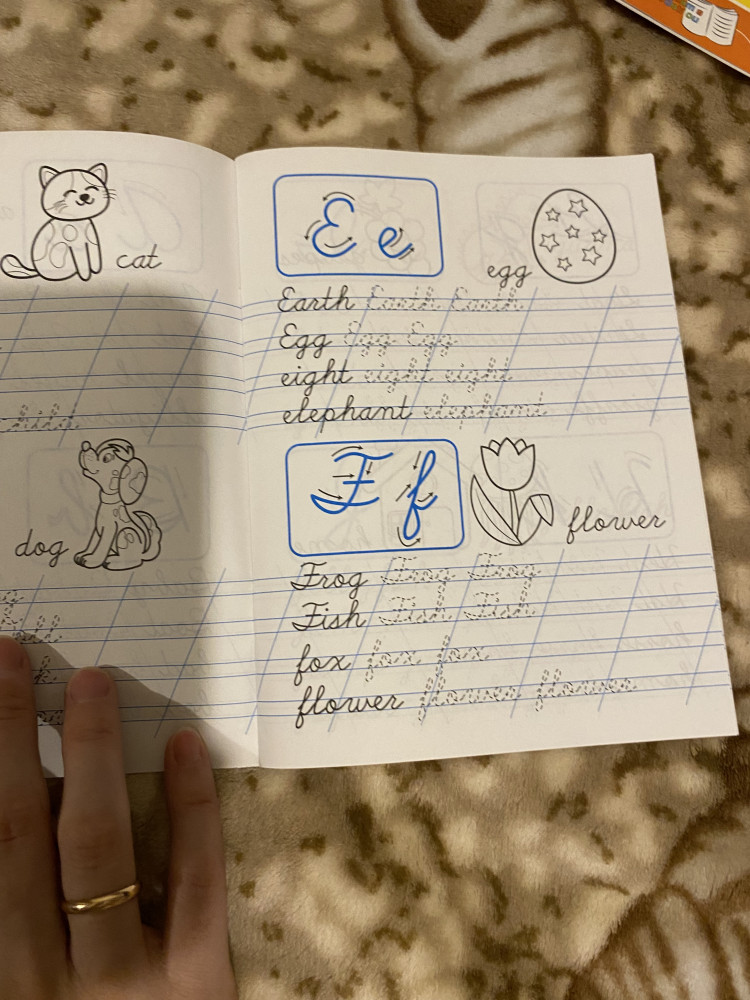 cat
child
dog
E e
egg
Earth Earth Earth
Egg Egg Egg
eight eight eight
elephant elephant
F f
flower
Frog Frog Frog
Fish Fish Fish
fox fox fox
flower flower flower